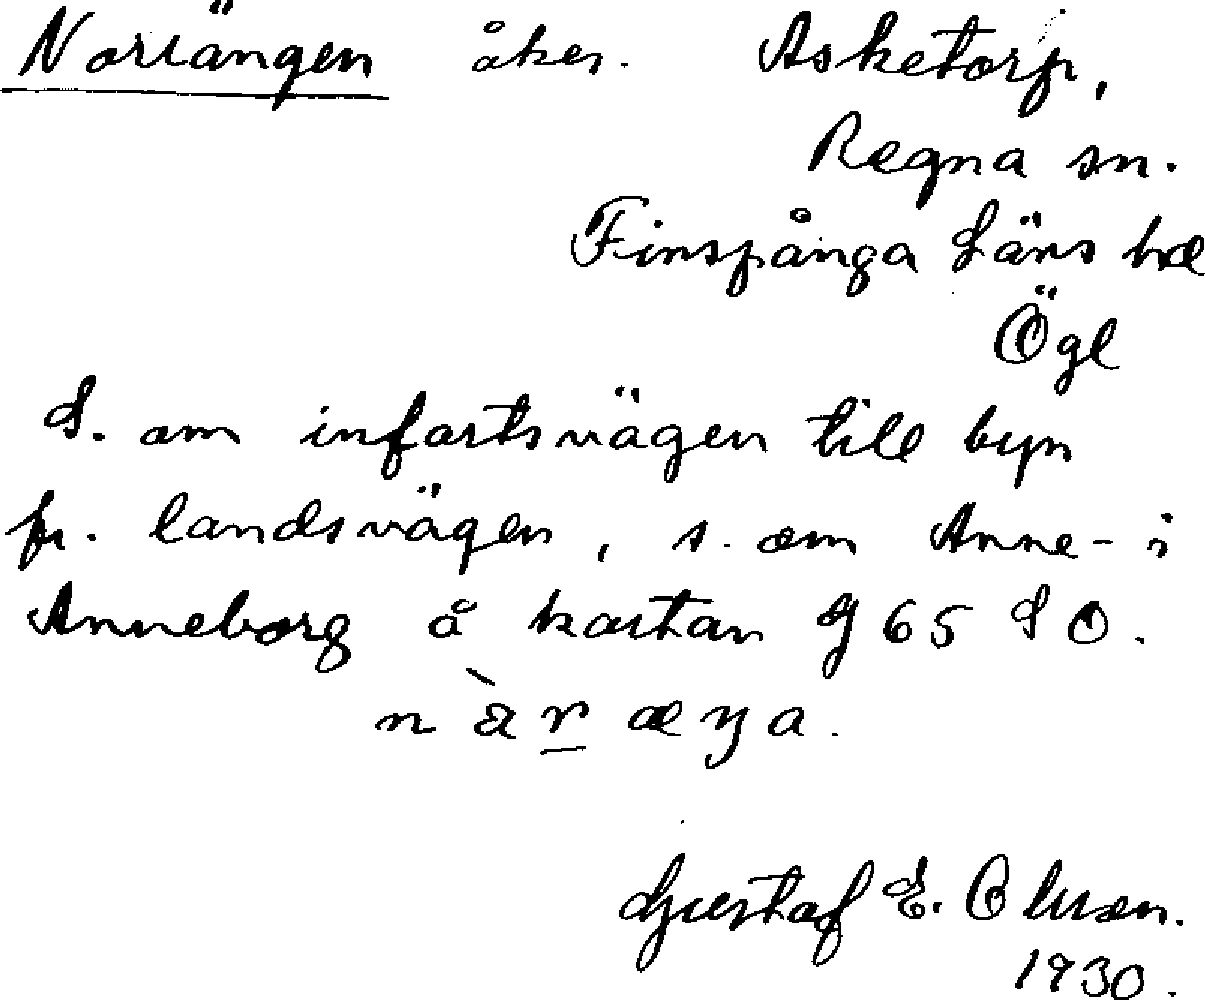 Norrängen åker. Asketorp,
Regna sn.
Finspånga Läns hd
Ögl
S. om infartsvägen till byn
fr. landsvägen, s. om Anne- i
Anneborg å kartan G 65 S O.
Gustaf E. Olsson.
1930.